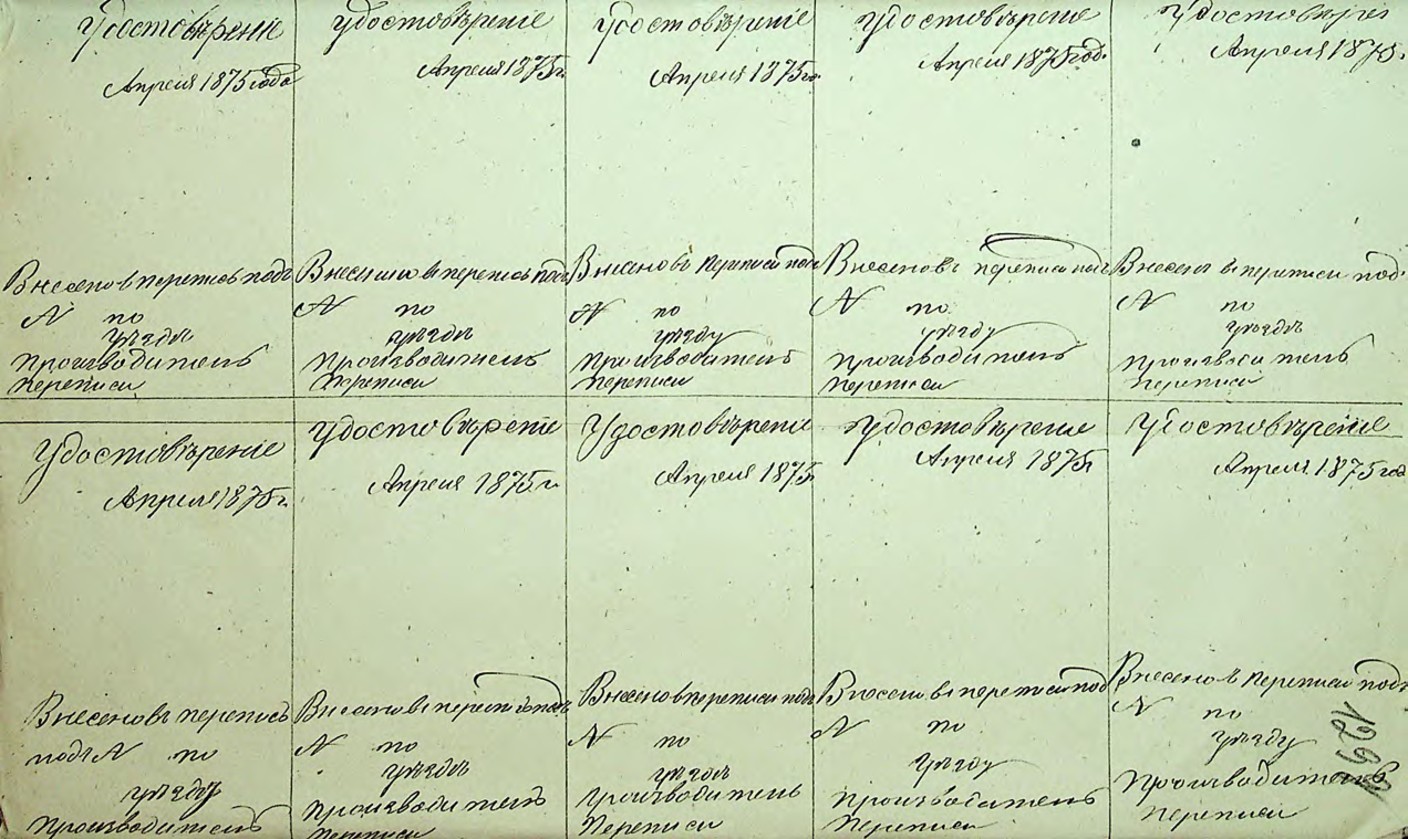 Удостовѣренiе
Апреля 1875 года
Внесено в перепись подъ
N по
уѣздѣ
Производитель
переписи
Удостовѣренiе
Апреля 1875 г.
Внесено въ перепись подъ
N по
уѣздѣ
Производитель
Переписи
Удостовѣренiе
Апреля 1875 го
Внесено въ Переписи подъ
N по
уѣзду
Производитель
Переписи
Удостовѣренiе
Апреля 1875 год.
Внесено въ переписи подъ
N по
уѣзду
Производитель
Переписи
Удостовѣре
Апреля 1875.
Внесено въ переписи под
N по
уѣздѣ
Производитель
Переписи
Удостовѣренiе
Апреля 1875 г.
Внесено въ перепись
подъ N по
уѣзду
Производитель
Удостовѣренiе
Апреля 1875 г.
Внесено въ перепись подъ
N по
уѣздѣ
Производитель
Переписи
Удостовѣренiе
Апреля 1875
Внесено въ переписи подъ
N по
уѣздѣ
Производитель
Переписи
Удостовѣренiе
Апреля 1875 г
Внесено въ переписи под
N по
уѣзду
Производитель
Переписи
Удостовѣренiе
Апреля 1875 год
Внесено въ переписи подъ
N по
уѣзду
Производитель
переписи